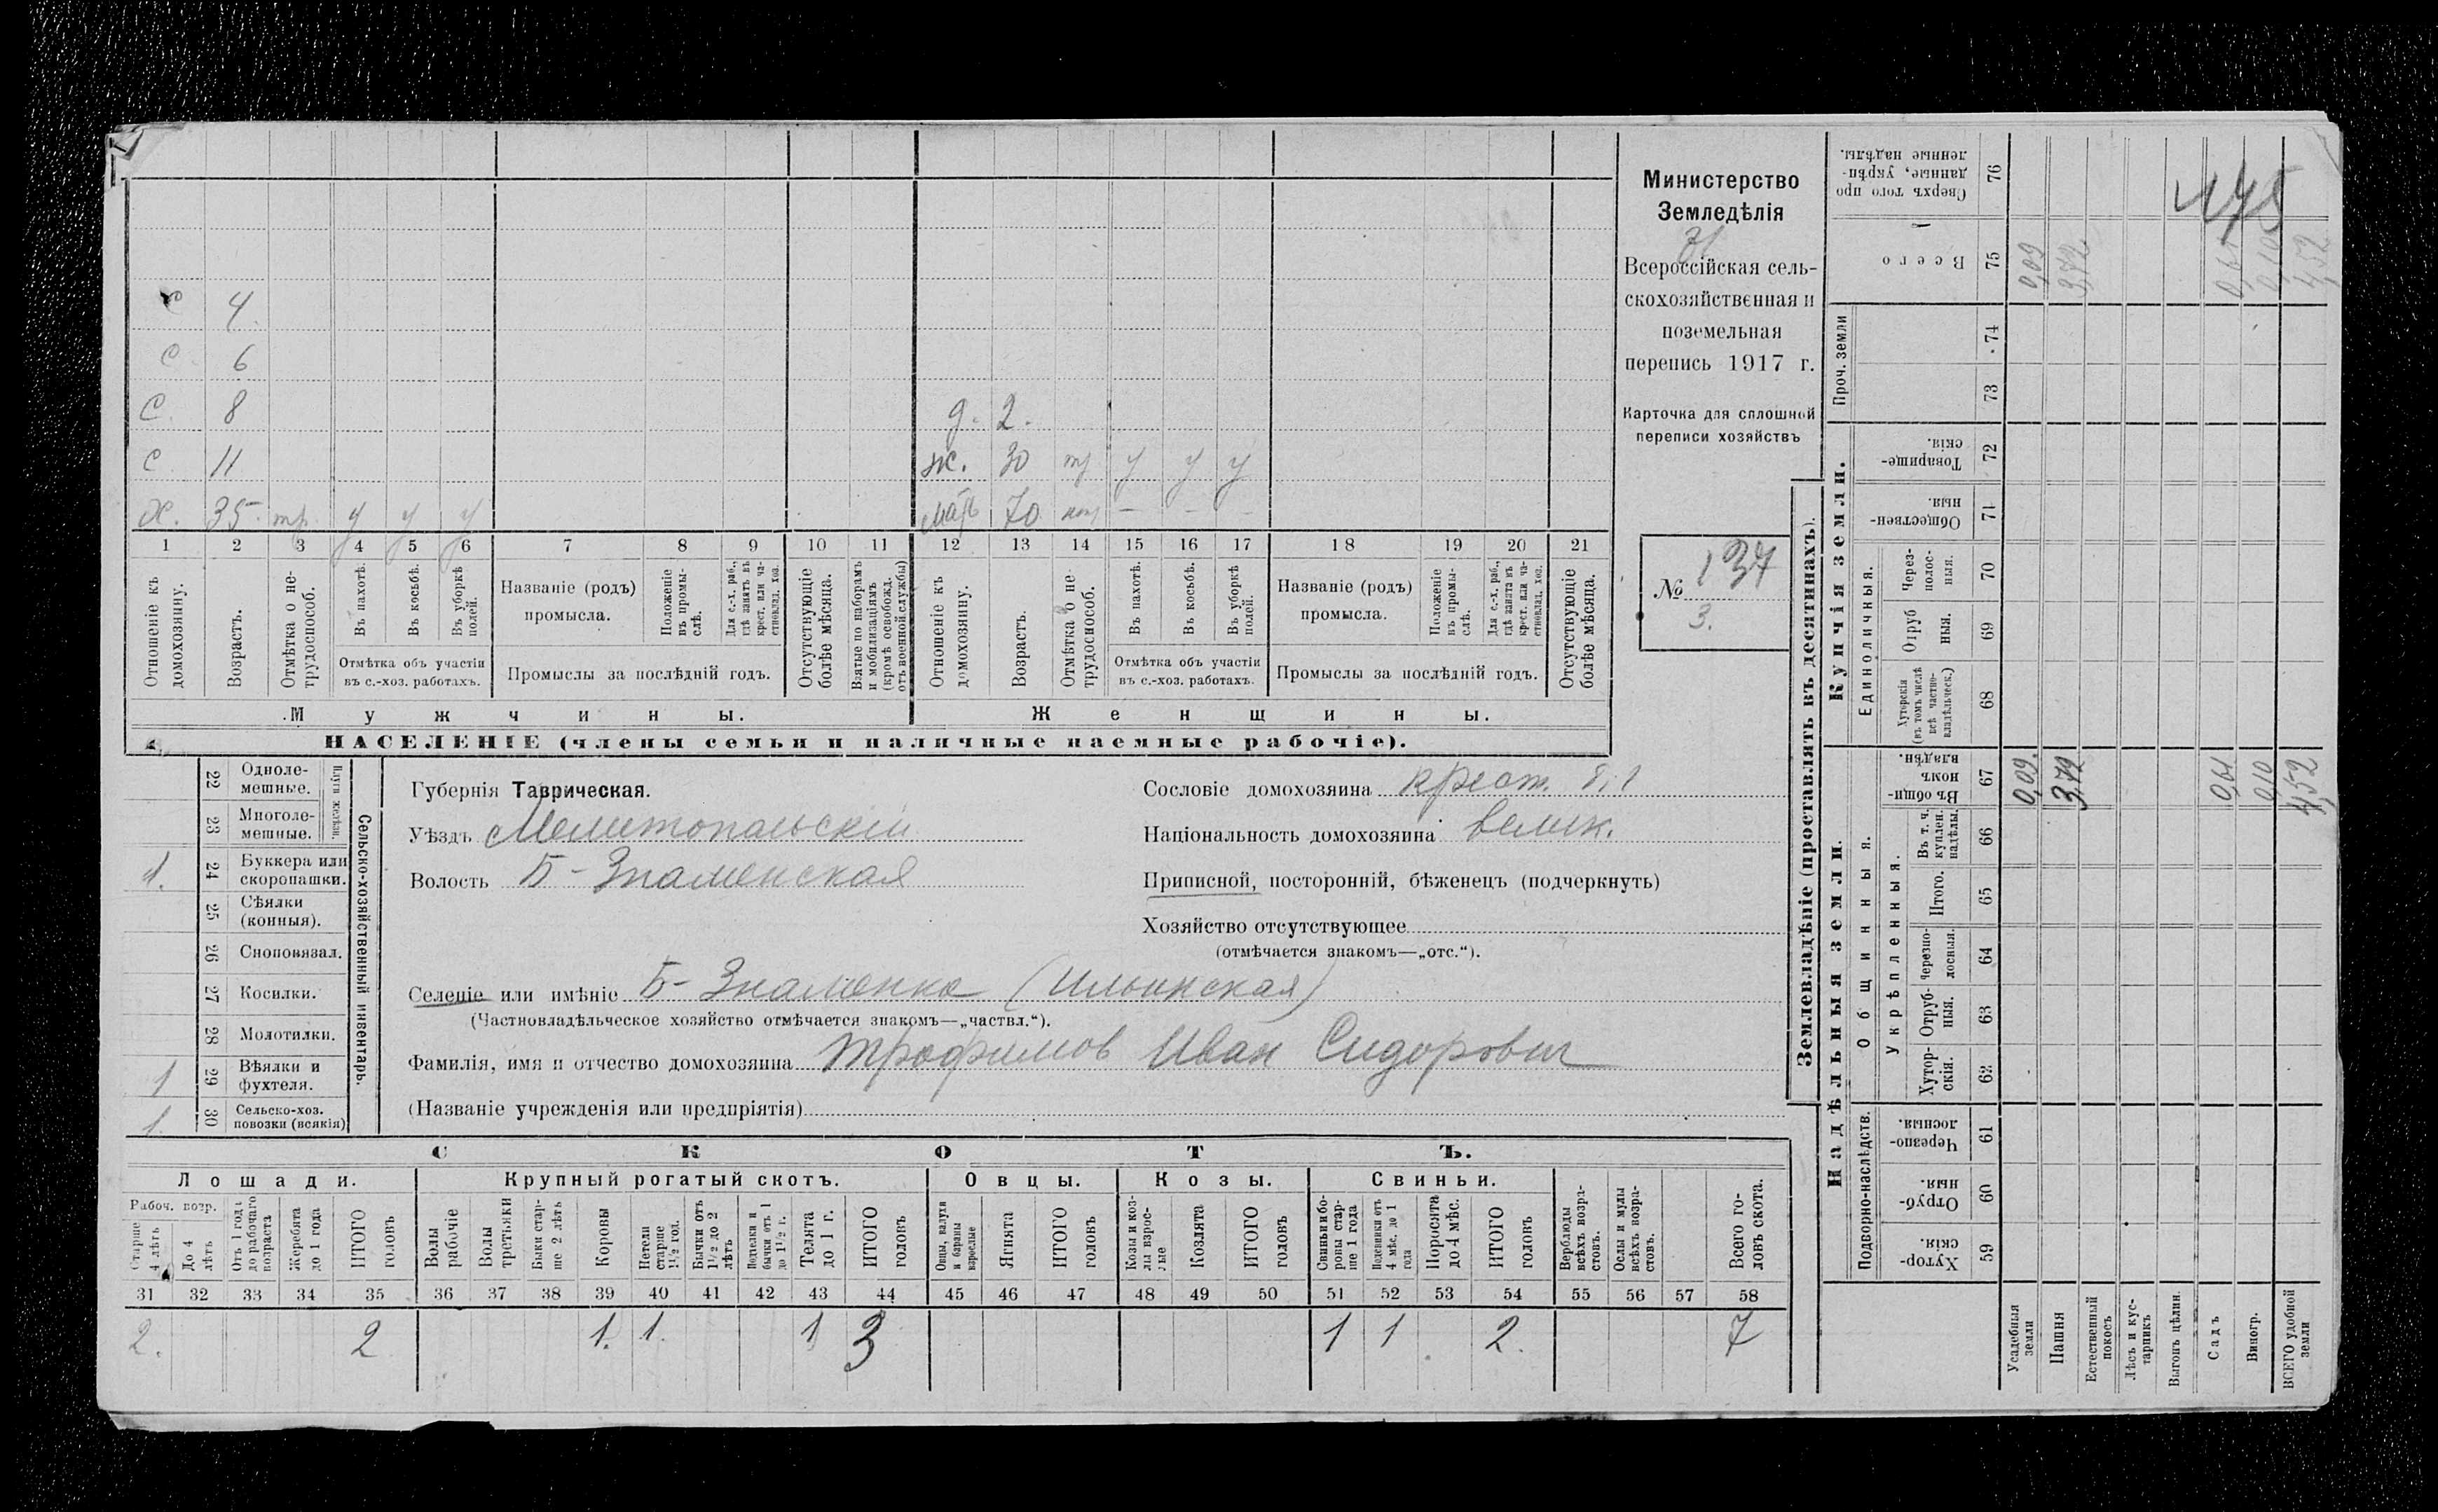 Министерство
Земледѣлія
Всероссійская сель-
скохозяйственная и
поземельная
перепись 1917 г.
Карточка для сплошной
переписи хозяйствъ
№ 137
3.
175
с 4
с 6
с. 8
с 11
х. 35 тр. у у у
д. 2.
ж. 30 тр у у у
мать 70 нтр — - -
1 2 3 4 5 6 7 8 9 10 11 12 13 14 15 16 17 18 19 20 21
Отношеніе къ домохозяину.
Возрастъ.
Отмѣтка о не-трудоспособ.
Въ пахотѣ.
Въ косьбѣ.
Въ уборкѣ полей.
Отмѣтка объ участіи
въ с.-хоз. работахъ.
Названіе (родъ)
промысла.
Положеніе въ промы-слѣ.
Для с.-х. раб., гдѣ занятъ въ крест. или ча-стновлад. хоз.
Промыслы за послѣдній годъ.
Отсутствующіе болѣе мѣсяца.
Взятые по наборамъ и мобилизаціямъ (кромѣ освобожд. отъ военной службы)
Отношеніе къ домохозяину.
Возрастъ.
Отмѣтка о не трудоспособ.
Въ пахотѣ.
Въ косьбѣ.
Въ уборкѣ полей.
Отмѣтка объ участіи
въ с.-хоз. работахъ.
Названіе (родъ)
промысла.
Положеніе въ промы-слѣ.
Для с.-х. раб., гдѣ занята въ крест. или ча-стновлад. хоз.
Промыслы за послѣдній годъ.
Отсутствующіе болѣе мѣсяца.
Мужчины.
Женщины.
НАСЕЛЕНІЕ (члены семьи и наличные наемные рабочіе).
Сельско-хозяйственный инвентарь.
Плуги желѣзн.
22 Одноле-мешные.
23 Многоле-мешные.
1. 24 Буккера или скоропашки.
25 Сѣялки (конныя).
26 Сноповязал.
27 Косилки.
28 Молотилки.
1 29 Вѣялки и фухтеля.
1. 30 Сельско-хоз. повозки (всякія)
Губернія Таврическая.
Уѣздъ Мелитопольскій
Волость Б-Знаменская
Сословіе домохозяина крест.
Національность домохозяина велик.
Приписной, посторонній, бѣженецъ (подчеркнуть)
Хозяйство отсутствующее
(отмѣчается знакомъ—„отс.“).
Селеніе или имѣніе Б-Знаменка (Ильинская)
(Частновладѣльческое хозяйство отмѣчается знакомъ—„частвл.“).
Фамилія, имя и отчество домохозяина Трофимов Иван Сидорович
(Названіе учрежденія или предпріятія)
СКОТЪ.
Лошади. Крупный рогатый скотъ. Овцы. Козы. Свиньи.
Рабоч. возр.
Старше 4 лѣтъ
До 4 лѣтъ
Отъ 1 года до рабочаго возраста
Жеребята до 1 года
ИТОГО головъ
Волы рабочіе
Волы третьяки
Быки стар-ше 2 лѣтъ
Коровы
Нетели старше 1½ год.
Бычки отъ 1½ до 2 лѣтъ
Подтелки и бычки отъ 1 до 1½ г.
Телята до 1 г.
ИТОГО головъ
Овцы, валухи и бараны взрослые
Ягнята
ИТОГО головъ
Козы и коз-лы взрос-лые
Козлята
ИТОГО головъ
Свиньи и бо-ровы стар-ше 1 года
Подсвинки отъ 4 мѣс. до 1 года
Поросята до 4 мѣс.
ИТОГО головъ
Верблюды всѣхъ возра-стовъ.
Ослы и мулы всѣхъ возра-стовъ.
Всего го-ловъ скота.
31 32 33 34 35 36 37 38 39 40 41 42 43 44 45 46 47 48 49 50 51 52 53 54 55 56 57 58
2. 2 1. 1. 1 3 1 1 2. 7
Землевладѣніе (проставлять въ десятинахъ).
Надѣльныя земли.
Купчія земли.
Проч. земли
Подворно-наслѣдств.
Общинныя.
Укрѣпленныя.
Единоличныя.
Сверхъ того про данные, укрѣп-ленные надѣлы. 76
Всего 75
74
73
Товарище-скія. 72
Обществен-ныя. 71
Через-полос-ныя. 70
Отруб ныя. 69
Хуторскія (въ томъ числѣ всѣ частно-владѣльческ.) 68
Въ общин-номъ владѣн. 67
Въ т. ч. куплен. надѣлы. 66
Итого. 65
Черезпо-лосныя. 64
Отруб-ныя. 63
Хутор-скія. 62
Черезпо-лосныя. 61
Отруб-ныя. 60
Хутор-скія. 59
0,09 3,72 0,61 0,10 4,52
0,09. 3,72 0,61 0,10 4,52
Усадебныя земли
Пашня
Естественный покосъ
Лѣсъ и кус-тарникъ
Выгонъ цѣлин.
Садъ
Виногр.
ВСЕГО удобной земли